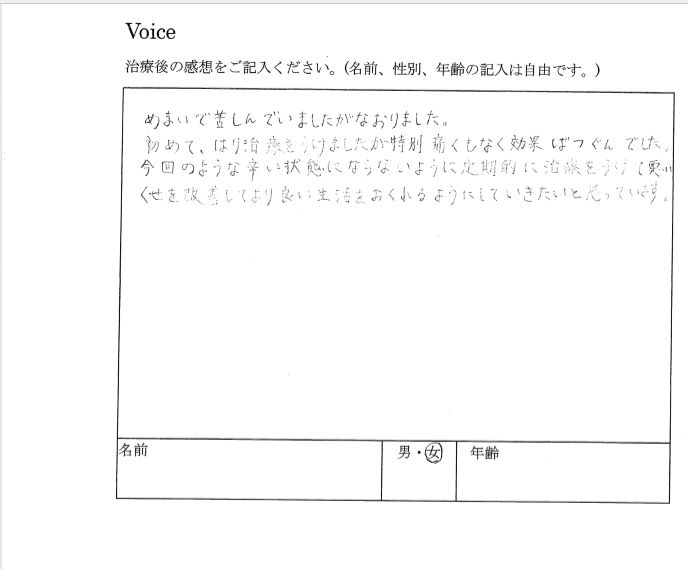 Voice
治療後の感想をご記入ください。(名前、性別、年齢の記入は自由です。)
めまいで苦しんでいましたがなおりました。
初めて、はり治療をうけましたが特別痛くもなく効果ばつぐんでした。
今回のような辛い状態にならないように定期的に治療をうけて悪い
くせを改善してより良い生活をおくれるようにしていきたいと思っています。
名前 男・女 年齢